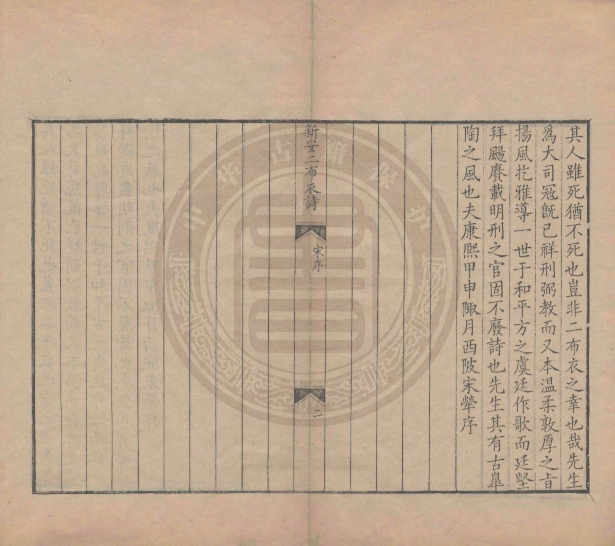 其人雖死猶不死也豈非二布衣之幸也哉先生
爲大司冦旣已祥刑弼教而又本温柔敦厚之㫖
揚風扢雅導一世于和平方之虞廷作歌而廷堅
拜颺賡載明刑之官固不廢詩也先生其有古臯
陶之風也夫康熙甲申陬月西陂宋犖序
新安二布衣詩
宋序
二